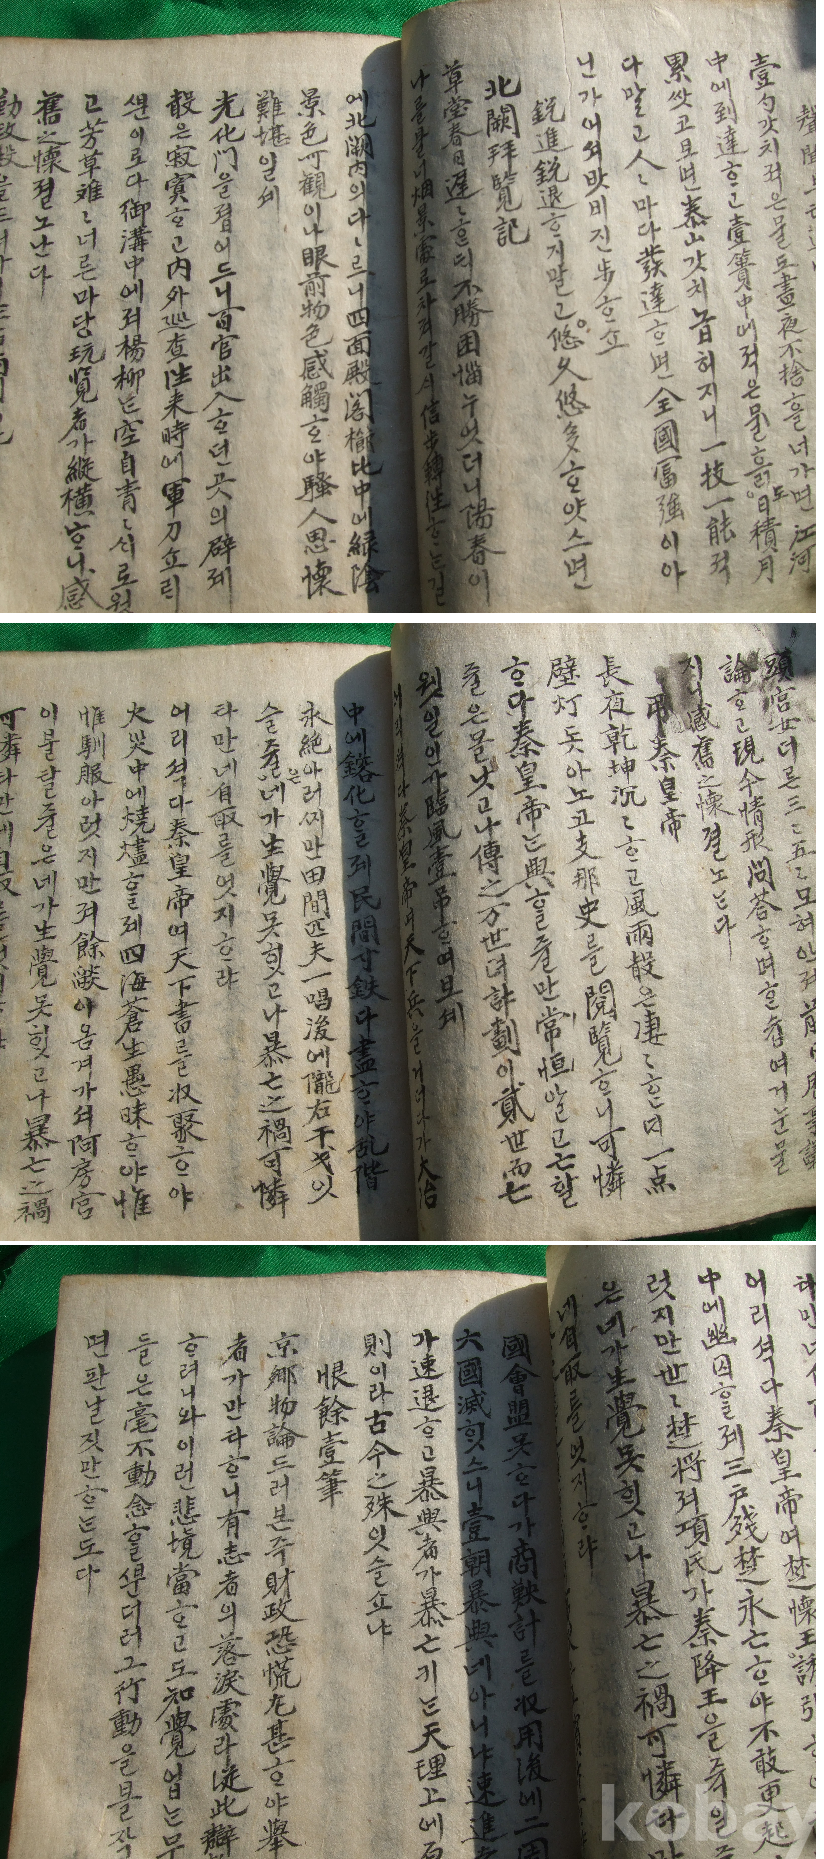 壹勺갓치젹은물도晝夜不捨흘너가면江河
中에到達ᄒᆞ고壹簣中에젹은물흙도日積月
累쌋고보면泰山갓치놉허지니一技一能젹
다말고人〻마다發達ᄒᆞ면全國富强이아
닌가어셔밧비진步ᄒᆞ쇼
銳進銳退ᄒᆞ지말고悠久悠多ᄒᆞ얏스면
北闕拜覽記
草堂春日遲〻ᄒᆞᆫ듸不勝困惱누엇더니陽春이
나를불너烟景處로차져갈시信步轉徃ᄒᆞᄂᆞᆫ길
에北闕內의다〻르니四面殿閣櫛比中에綠陰
景色可觀이나眼前物色感觸ᄒᆞ야騷人思懷
難堪일세
光化门을졉어드니百官出入ᄒᆞ던곳의辟졔
殿은寂寞ᄒᆞ고內外巡查徃来時에軍刀쇼리
ᄲᅮᆫ이로다御溝中에져楊柳ᄂᆞᆫ空自青〻시로웟
고芳草雜〻너른마당玩覽者가縱橫ᄒᆞ니感
舊之懷졀노난다
論ᄒᆞ고現今情形問答ᄒᆞ며흔슘여게눈물
지니感舊之懷졀노ᄂᆞᆫ다
吊秦皇帝
長夜乾坤沉〻ᄒᆞ고風雨聲은凄〻ᄒᆞᆫ듸一点
壁灯돗아노고支那史를閱覽ᄒᆞ니可憐
ᄒᆞ다秦皇帝ᄂᆞᆫ興ᄒᆞᆯ쥴만常恒알고亡할
쥴은몰낫고나傳之万世뎌計劃이貳世而亡
웻일인가臨風壹吊ᄒᆞ여보셰
어리셕다秦皇帝여天下兵을거더다가大冶
中에鎔化ᄒᆞᆯ졔民間寸鉄다盡ᄒᆞ야乱階
永絶아러찌만田間匹夫一唱後에隴右干戈잇
슬쥴은네가生覺못ᄒᆡᆺ고나暴亡之禍可憐
타만네自取를엇지ᄒᆞ랴
어리셕다秦皇帝여天下書를收聚ᄒᆞ야
火災中에燒燼ᄒᆞᆯ졔四海蒼生愚昧ᄒᆞ야惟
惟馴服아럿지만져餘燄이옴겨가셔阿房宮
이불탈쥴은네가生覺못ᄒᆡᆺ고나暴亡之禍
可憐타만네自取를엇지ᄒᆞ랴
어리셕다秦皇帝여楚懷王誘引
中에幽囚ᄒᆞᆯ졔三戶殘楚永亡ᄒᆞ야不敢更起
럿지만世〻楚將져項氏가秦降王을쥭일쥴
은네가生覺못ᄒᆡᆺ고나暴亡之禍可憐타만
네自取를엇지ᄒᆞ랴
國會盟못ᄒᆞ다가商鞅計를收用後에二周
六國滅ᄒᆡᆺ스니壹朝暴興네아니냐速進者
가速退ᄒᆞ고暴興者가暴亡키ᄂᆞᆫ天理上에原
則이라古今之殊잇슬쇼냐
恨餘壹筆
京鄉物論드러본즉財政恐慌尤甚ᄒᆞ야擧
者가만타ᄒᆞ니有志者의落淚處라從此辭
ᄒᆞ려니와이런悲境當ᄒᆞ고도知覺업ᄂᆞᆫ무
들은毫不動念ᄒᆞᆯᄲᅮᆫ더러그行動을볼작
면판날짓만ᄒᆞᄂᆞᆫ도다
kobay